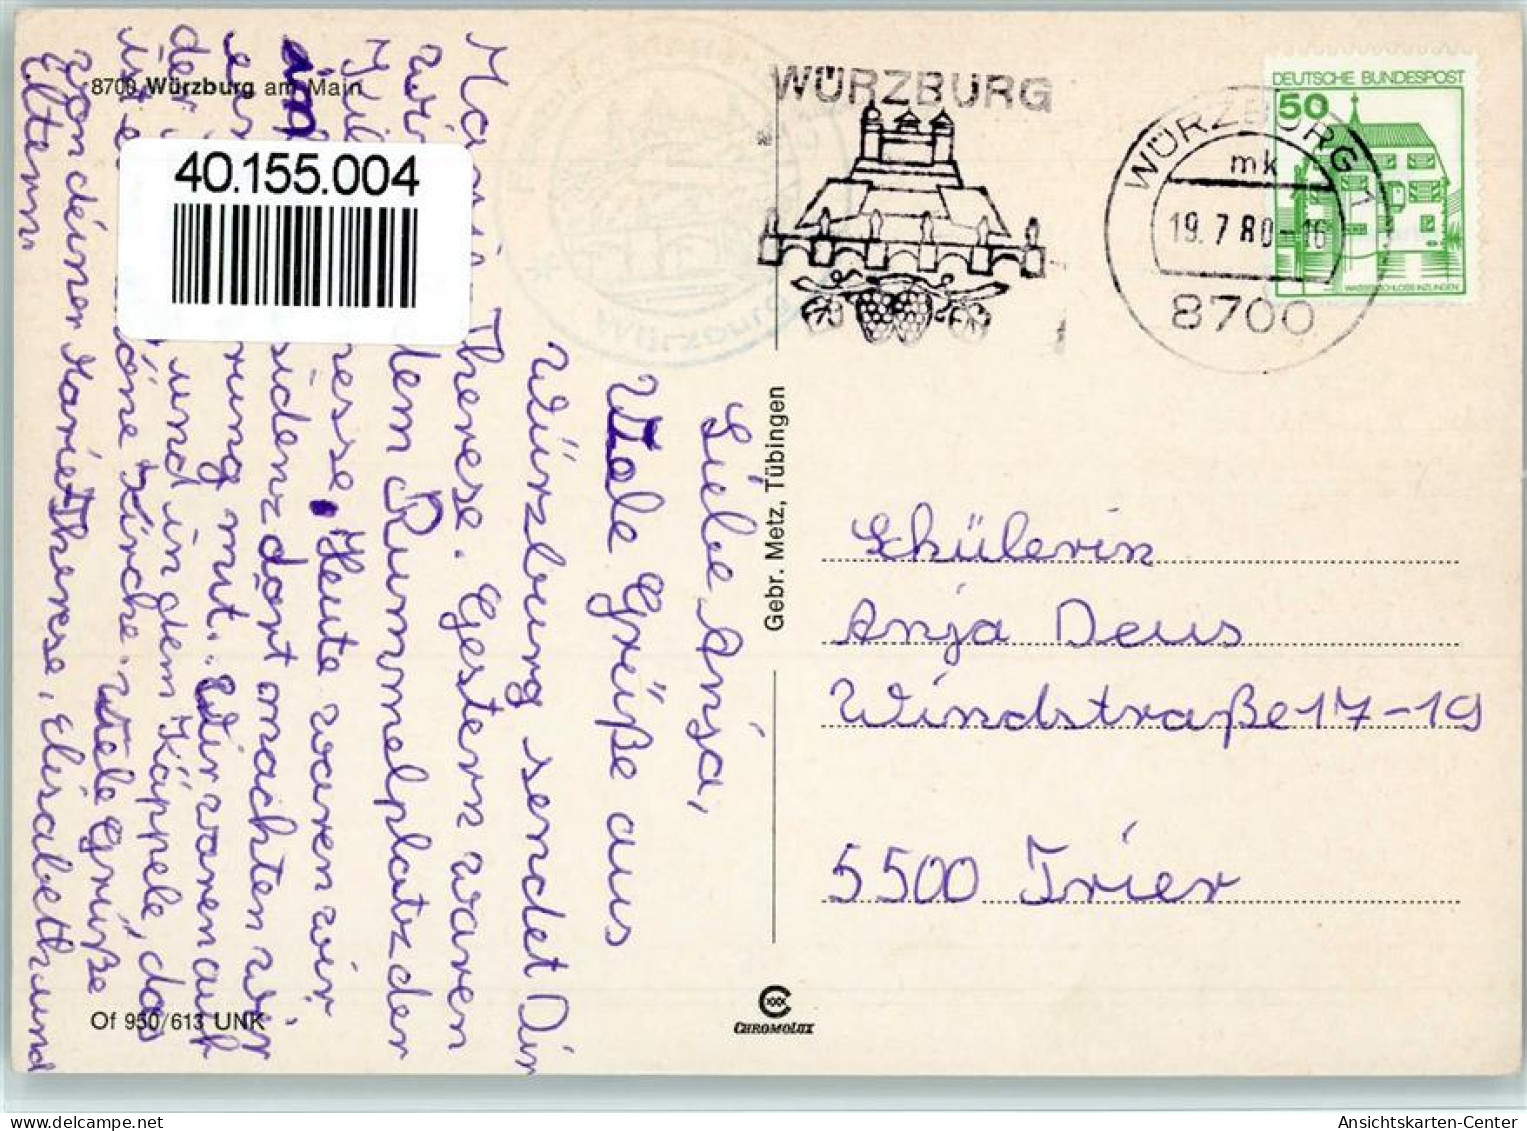 8700 Würzburg am Main
40.155.004
WÜRZBURG
WÜRZBURG 1
mk
19.7.80-16
8700
DEUTSCHE BUNDESPOST
50
WASSERSCHLOSS INZLINGEN
Liebe Anja,
Viele Grüße aus
Würzburg sendet Dir
Marie Therese. Gestern waren
wir dem Rummelplatz der
Heute waren wir
sidenz dort machten wir
rung mit. Wir waren auf
der und in dem Käppele, das
ist e öne Kirche. Viele Grüße
von deiner Marie Therese, Elisabeth und
Eltern.
Gebr. Metz, Tübingen
Schülerin
Anja Deus
Windstraße 17-19
5500 Trier
Of 950/613 UNK
CHROMOLUX
Ansichtskarten-Center
delcampe.net